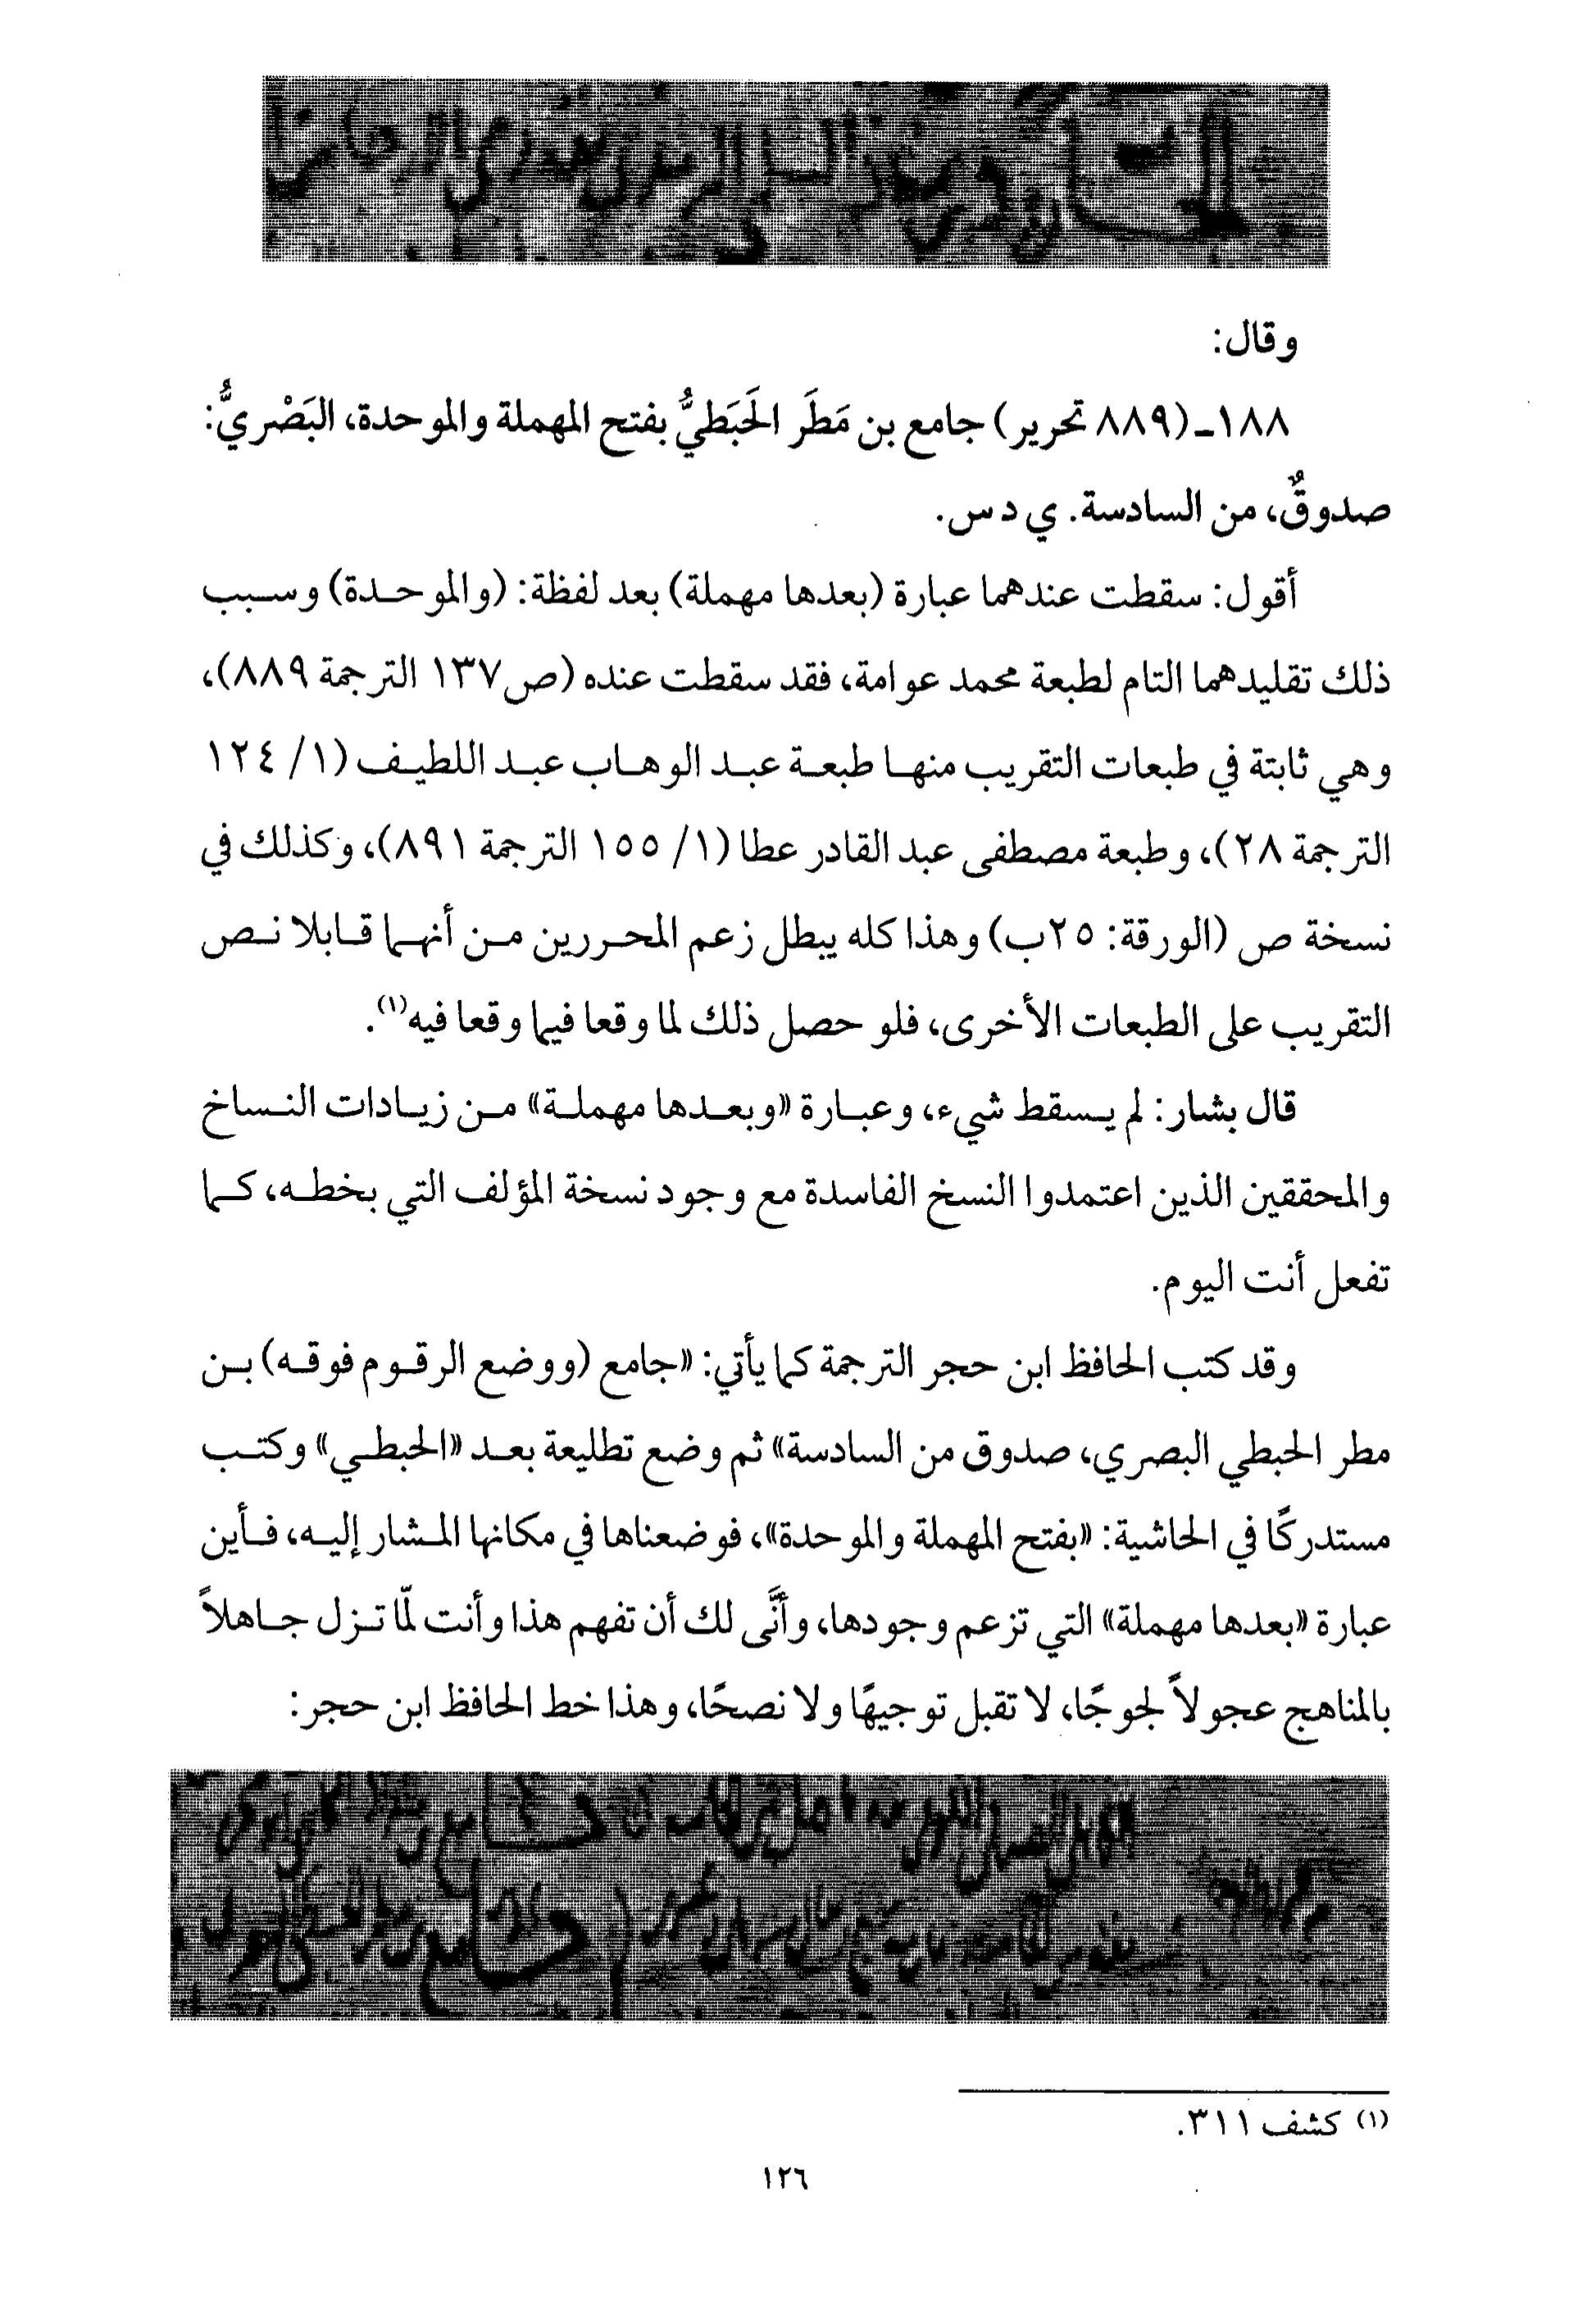 وقال:
١٨٨ـ (٨٨٩ تحرير) جامع بن مَطَر الحَبَطيُّ بفتح المهملة والموحدة، البَصْريُّ:
صدوقٌ، من السادسة. ي د س.
أقول: سقطت عندهما عبارة (بعدها مهملة) بعد لفظة: (والموحدة) وسبب
ذلك تقليدهما التام لطبعة محمد عوامة، فقد سقطت عنده (ص١٣٧ الترجمة ٨٨٩)،
وهي ثابتة في طبعات التقريب منها طبعة عبد الوهاب عبد اللطيف (١/ ١٢٤
الترجمة ٢٨)، وطبعة مصطفى عبد القادر عطا (١/ ١٥٥ الترجمة ٨٩١)، وكذلك في
نسخة ص (الورقة: ٢٥ب) وهذا كله يبطل زعم المحررين من أنهما قابلا نص
التقريب على الطبعات الأخرى، فلو حصل ذلك لما وقعا فيما وقعا فيه(١).
قال بشار: لم يسقط شيء، وعبارة «وبعدها مهملة» من زيادات النساخ
والمحققين الذين اعتمدوا النسخ الفاسدة مع وجود نسخة المؤلف التي بخطه، كما
تفعل أنت اليوم.
وقد كتب الحافظ ابن حجر الترجمة كما يأتي: «جامع (ووضع الرقوم فوقه) بن
مطر الحبطي البصري، صدوق من السادسة» ثم وضع تطليعة بعد «الحبطي» وكتب
مستدركًا في الحاشية: «بفتح المهملة والموحدة»، فوضعناها في مكانها المشار إليه، فأين
عبارة «بعدها مهملة» التي تزعم وجودها، وأنَّى لك أن تفهم هذا وأنت لمّا تزل جاهلاً
بالمناهج عجولاً لجوجًا، لا تقبل توجيهًا ولا نصحًا، وهذا خط الحافظ ابن حجر:
(١) كشف ٣١١.
١٢٦